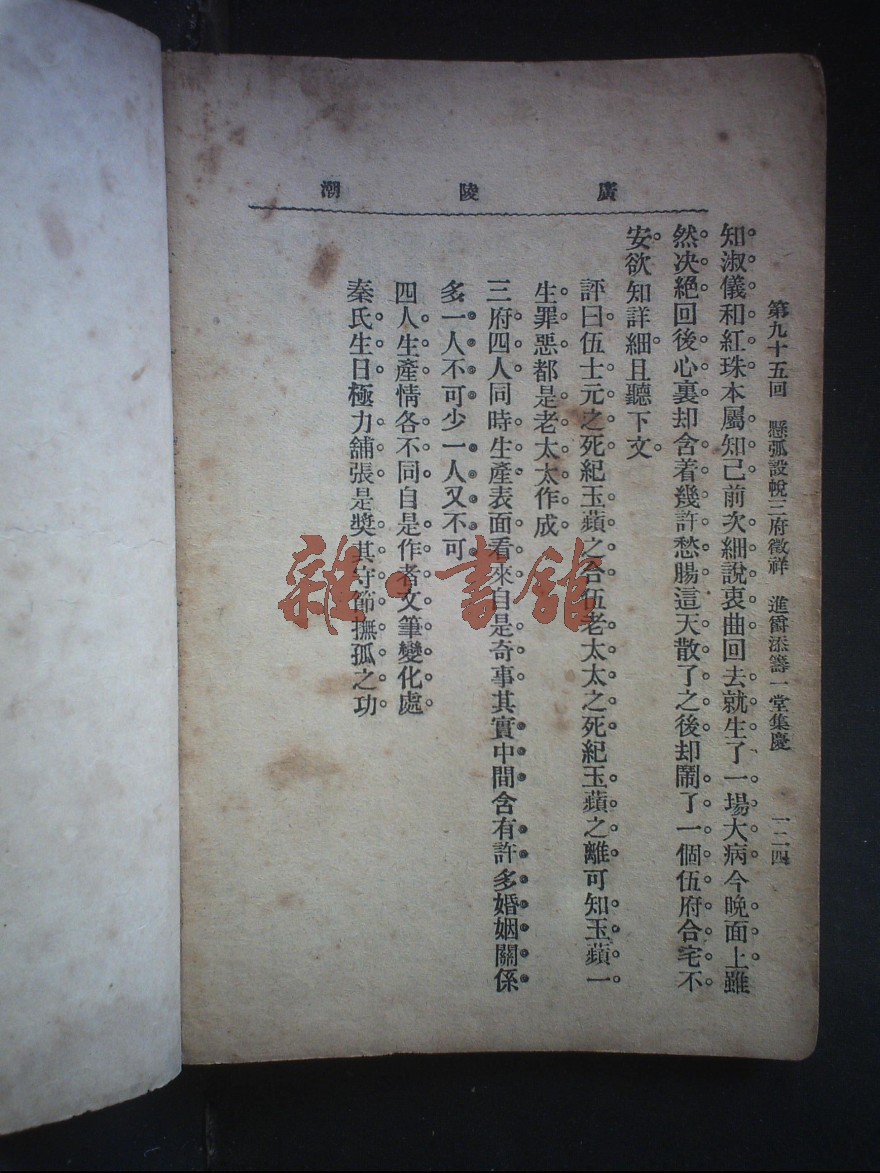 廣陵潮
第九十五回 懸弧設帨三府徵祥 進爵添籌一堂集慶 一二四
知淑儀和紅珠本屬知己前次細說衷曲回去就生了一場大病今晚面上雖
然决絕回後心裏却含着幾許愁腸這天散了之後却鬧了一個伍府合宅不
安欲知詳細且聽下文
評曰伍士元之死紀玉蘋之合伍老太太之死紀玉蘋之離可知玉蘋一
生罪惡都是老太太作成
三府四人同時生產表面看來自是奇事其實中間含有許多婚姻關係
多一人不可少一人又不可
四人生產情各不同自是作者文筆變化處
秦氏生日極力舖張是獎其守節撫孤之功
雜·書館